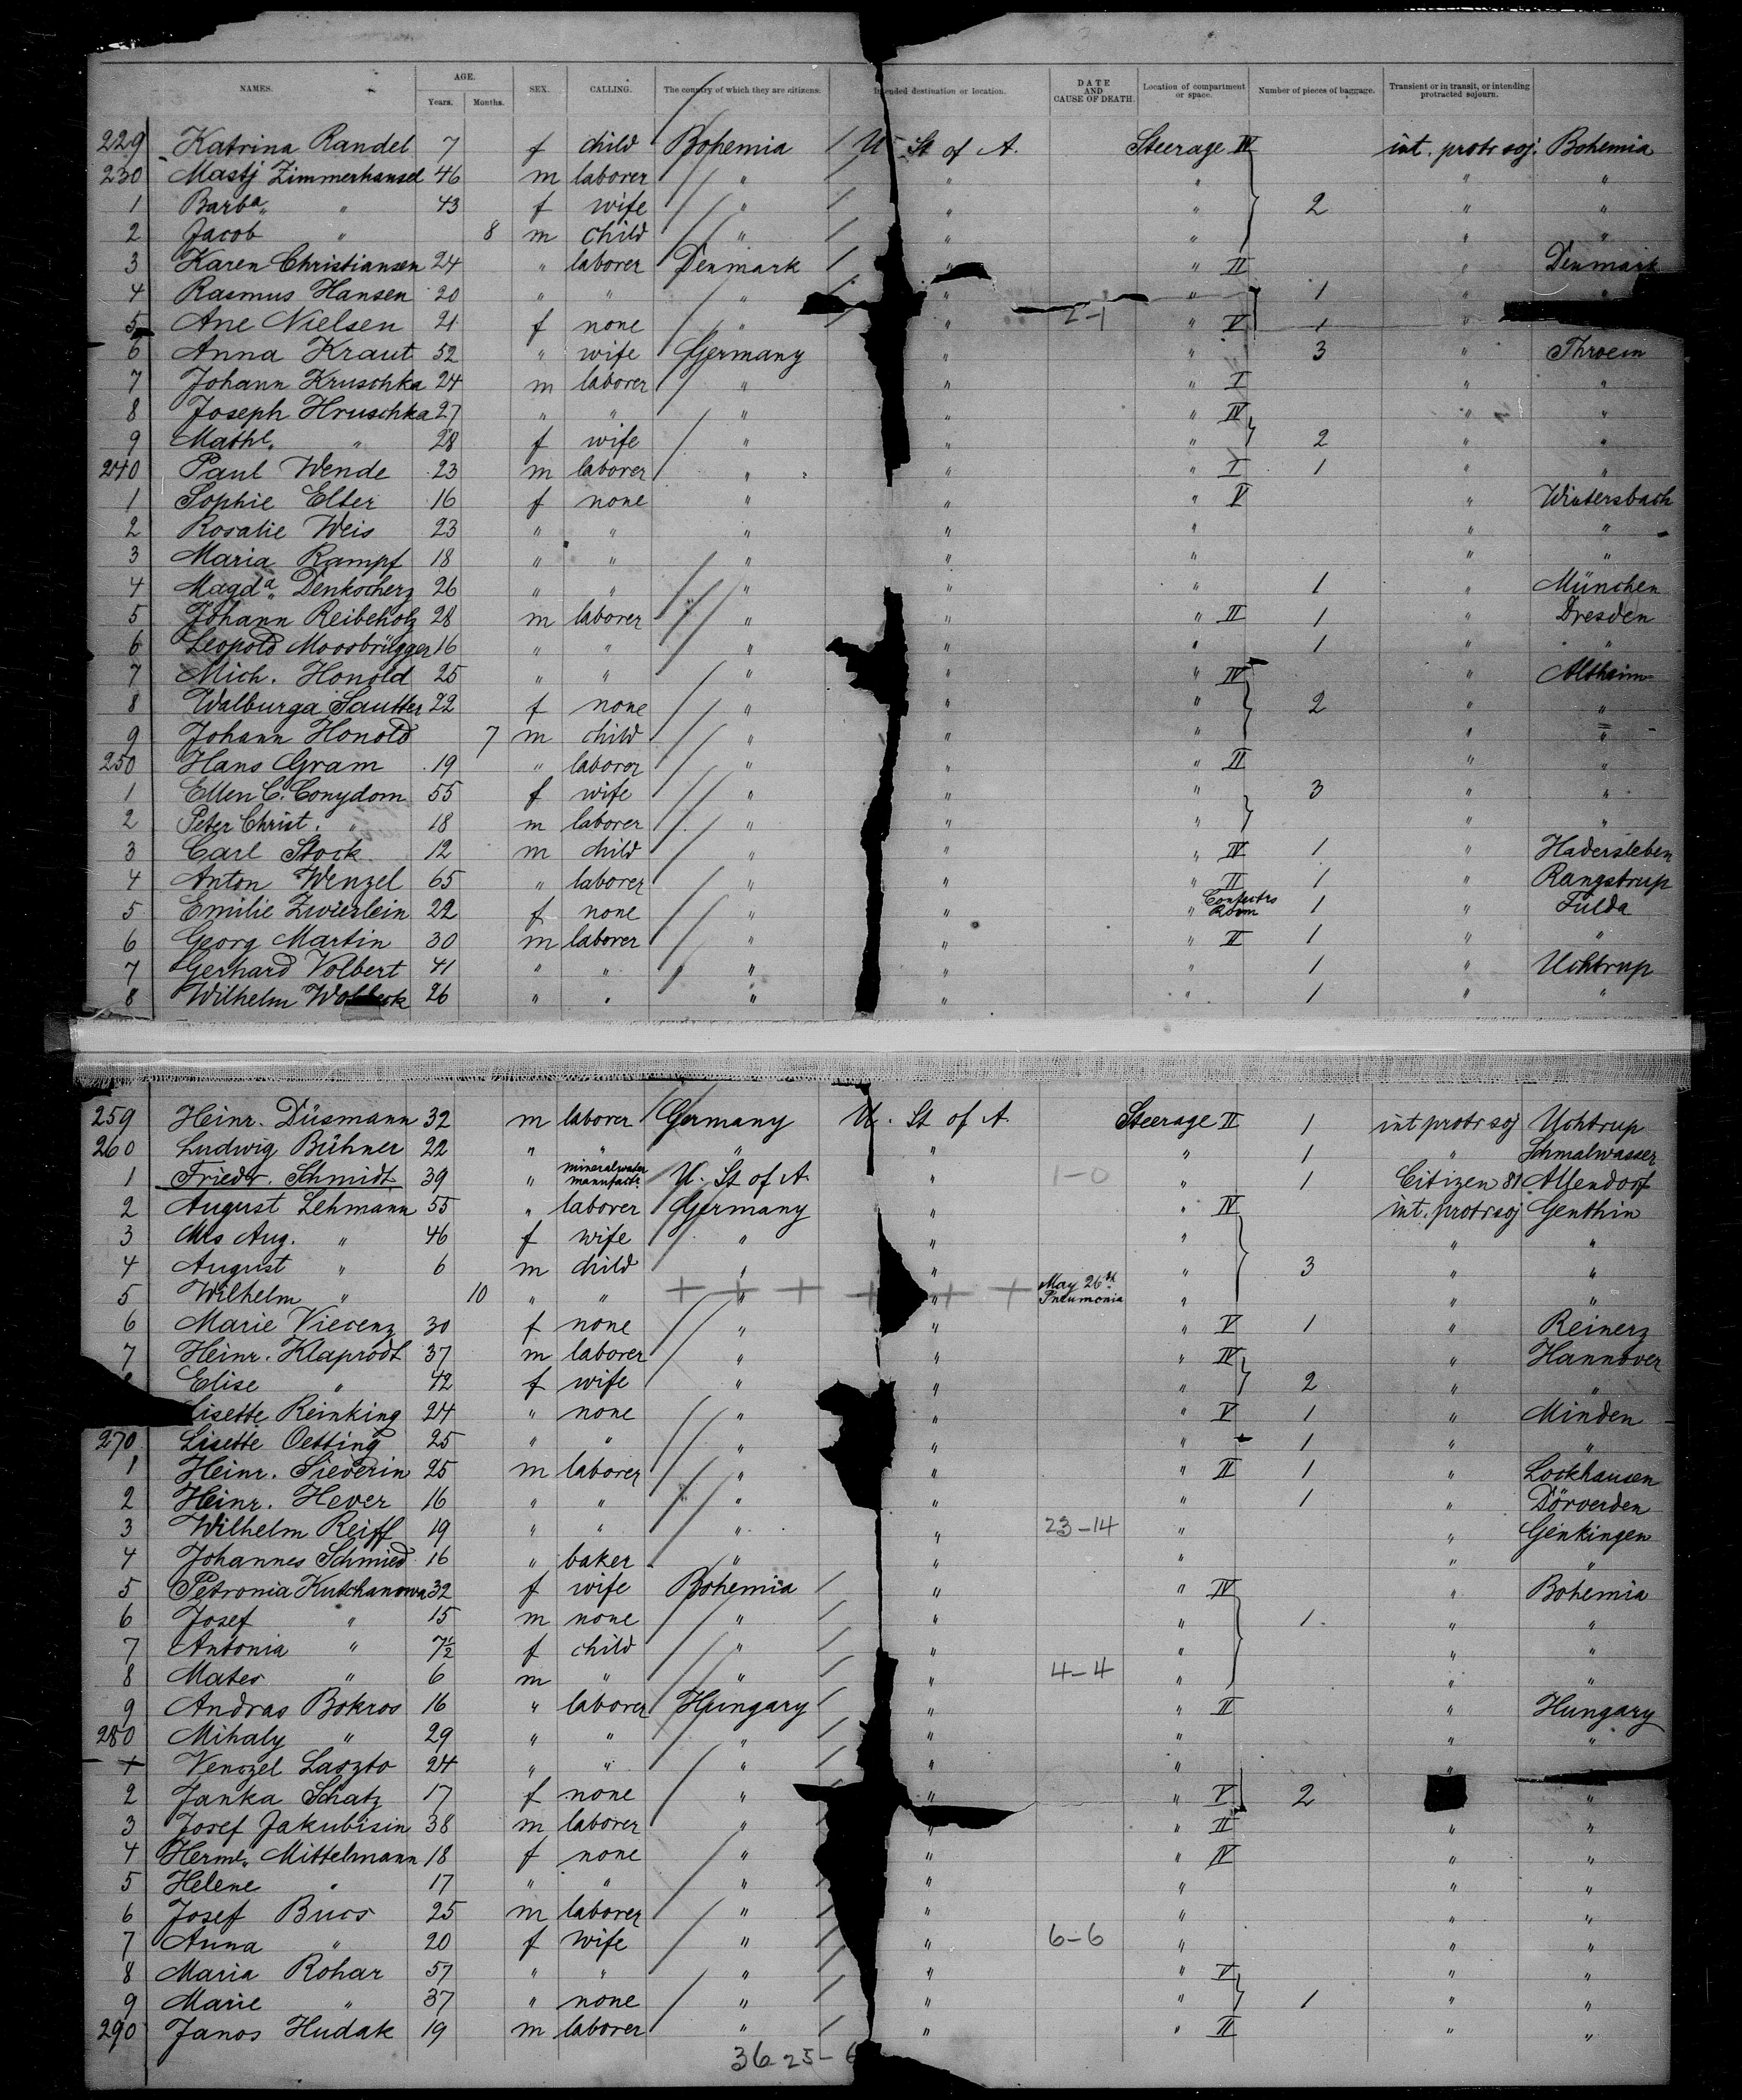 NAMES. AGE. Years. Months. SEX. CALLING. The country of which they are citizens. Intended destination or location. DATE AND CAUSE OF DEATH. Location of compartment or space. Number of pieces of baggage. Transient or in transit, or intending protracted sojourn.
229 Katrina Randel 7 f child Bohemia U. St of A. Steerage IV int. protr soj. Bohemia
230 Mastj Zimmerhansel 46 m laborer " " " " "
1 Barba " 43 f wife " " " 2 " "
2 Jacob " 8 m child " " " " "
3 Karen Christiansen 24 " laborer Denmark " " II " Denmark
4 Rasmus Hansen 20 " " " " " 1 "
5 Ane Nielsen 21 f none " " 2-1 " V 1 "
6 Anna Kraut 52 " wife Germany " " 3 " Throem
7 Johann Kruschka 24 m laborer " " " I " "
8 Joseph Hruschka 27 " " " " " IV " "
9 Mathl. " 28 f wife " " " 2 " "
240 Paul Wende 23 m laborer " " " I 1 " "
1 Sophie Elter 16 f none " " " V " Wintersbach
2 Rosalie Weis 23 " " " " " " "
3 Maria Rampf 18 " " " " " " "
4 Magda. Denkscherz 26 " " " " " 1 " München
5 Johann Reibeholz 28 m laborer " " " II 1 " Dresden
6 Leopold Moosbrügger 16 " " " " " 1 " "
7 Mich. Honold 25 " " " " " IV " Altheim
8 Walburga Sautter 22 f none " " " 2 " "
9 Johann Honold 7 m child " " " " "
250 Hans Gram 19 " laborer " " " II " "
1 Ellen C. Conydom 55 f wife " " " 3 " "
2 Peter Christ. " 18 m laborer " " " " "
3 Carl Stock 12 m child " " " IV 1 " Hadersleben
4 Anton Wenzel 65 " laborer " " " II 1 " Rangstrup
5 Emilie Zwierlein 22 f none " " " Room 1 " Fulda
6 Georg Martin 30 m laborer " " " II 1 " "
7 Gerhard Volbert 41 " " " " " 1 " Uchtrup
8 Wilhelm 26 " " " " " 1 " "
259 Heinr. Düsmann 32 m laborer Germany U. St of A. Steerage II 1 int protr soj Uchtrup
260 Ludwig Bühner 22 " " " " " 1 " Schmalwasser
1 Friedr. Schmidt 39 " mineralwater manufact. U. St of A. " 1-0 " 1 Citizen 81 Allendorf
2 August Lehmann 55 " laborer Germany " " IV int. protr soj Genthin
3 Mrs Aug. " 46 f wife " " " " "
4 August " 6 m child " " " 3 " "
5 Wilhelm " 10 " " + + " + + + + May 26th Pneumonia " " "
6 Marie Vicenz 30 f none " " " V 1 " Reinerz
7 Heinr. Klaprodt 37 m laborer " " " IV " Hannover
Elise " 42 f wife " " " 2 " "
Lisette Reinking 24 " none " " " V 1 " Minden
270 Lisette Oetting 25 " " " " " 1 " "
1 Heinr. Sieverin 25 m laborer " " " II 1 " Lockhausen
2 Heinr. Hever 16 " " " " " 1 " Dörverden
3 Wilhelm Reiff 19 " " " " 23-14 " " Genkingen
4 Johannes Schmied 16 " baker " " " " "
5 Petronia Kutchanowa 32 f wife Bohemia " " IV " Bohemia
6 Josef " 15 m none " " " 1 " "
7 Antonia " 7½ f child " " " " "
8 Mates " 6 m " " " 4-4 " " "
9 Andras Bokros 16 " laborer Hungary " " II " Hungary
280 Mihaly " 29 " " " " " " "
+ Venszel Laszto 24 " " " " " "
2 Janka Schatz 17 f none " " " V 2 "
3 Josef Jakubisin 38 m laborer " " " II " "
4 Herml. Mittelmann 18 f none " " " IV " "
5 Helene " 17 " " " " " " "
6 Josef Bucs 25 m laborer " " " " "
7 Anna " 20 f wife " " 6-6 " " "
8 Maria Rohar 57 " " " " " V " "
9 Marie " 37 " none " " " 1 " "
290 Janos Hudak 19 m laborer " " " II " "
36 25-6